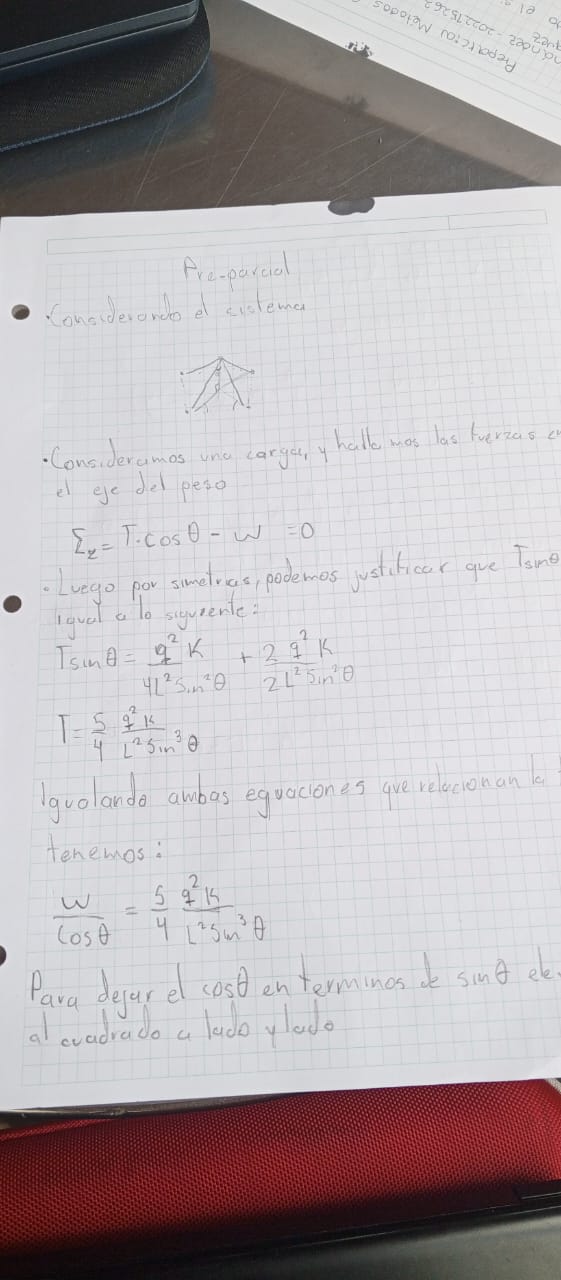 Preparación Metodos
Pre-parcial
• Considerando el sistema
• Consideramos una carga, y hallemos las fuerzas en
el eje del peso
Σz = T·cosθ - W = 0
• Luego por simetrias, podemos justificar que Tsinθ
igual a lo siguiente:
Tsinθ = q²K / 4L²Sin²θ + 2q²K / 2L²Sin²θ
T = 5/4 q²K / L²Sin³θ
Igualando ambas equaciones que relacionan la
tenemos:
W / Cosθ = 5/4 q²K / L²Sin³θ
Para dejar el cosθ en terminos de sinθ
al cuadrado a lado y lado